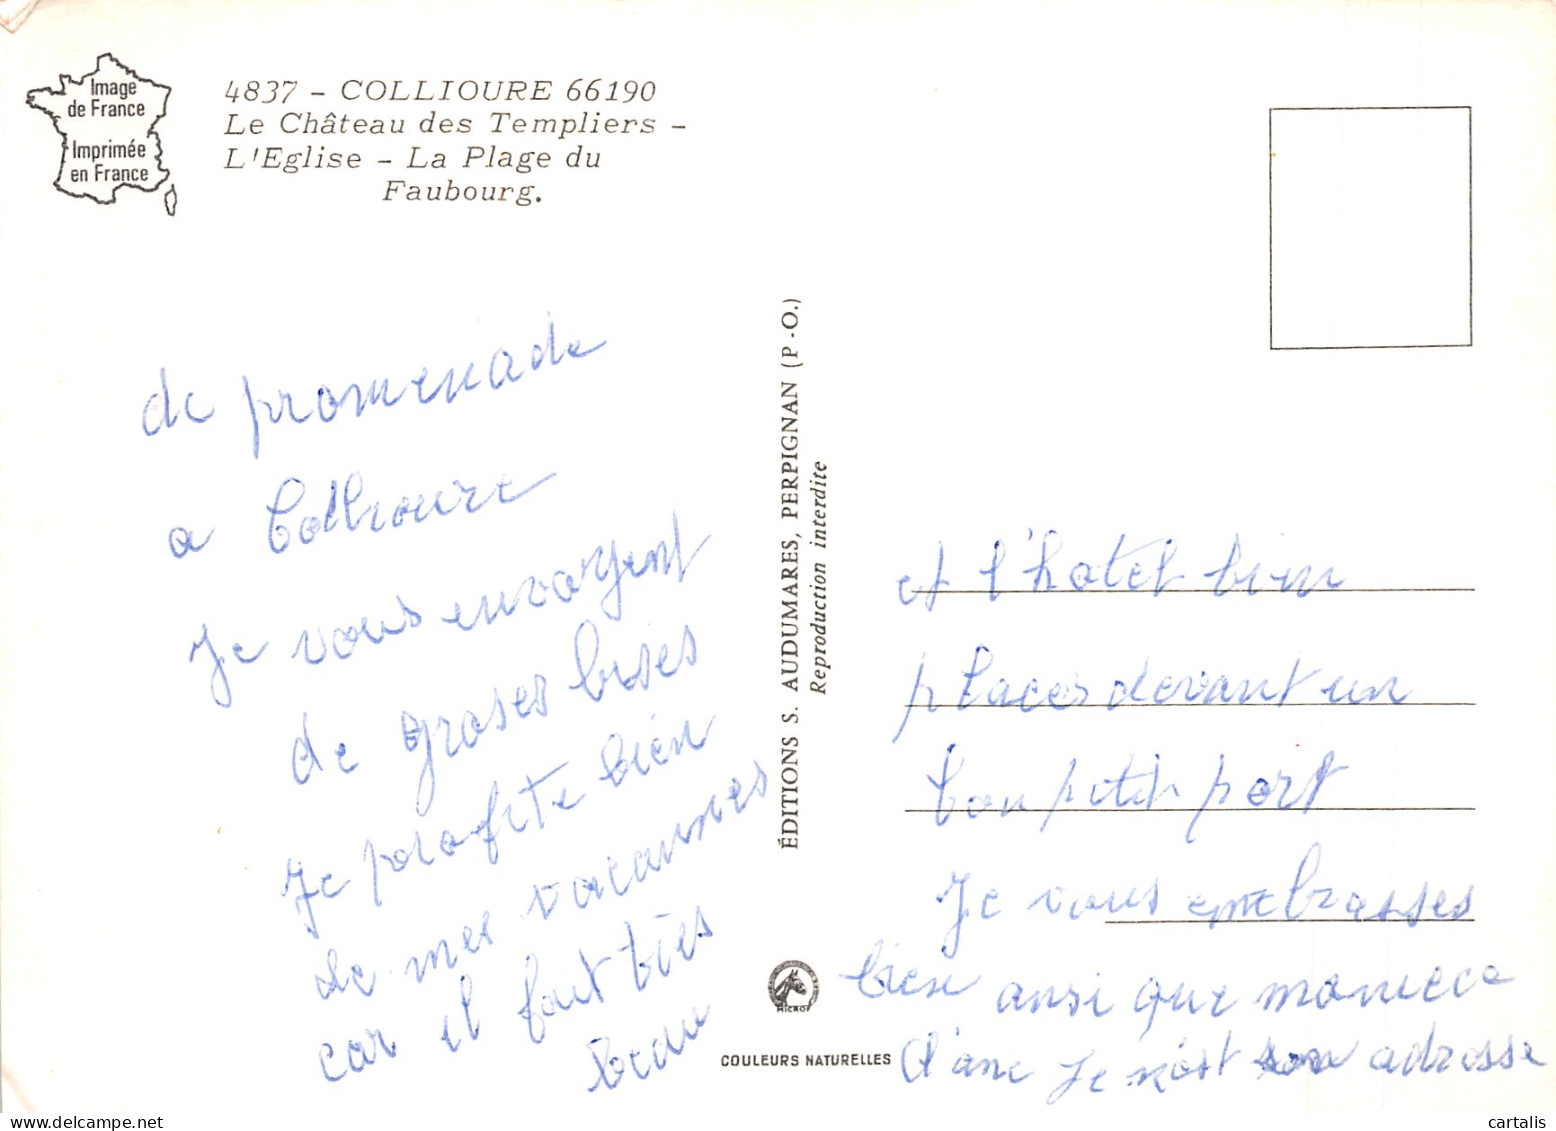 Image
de France
Imprimée
en France
4837 - COLLIOURE 66190
Le Château des Templiers -
L'Eglise - La Plage du
Faubourg.
de promenade
a Collioure
Je vous envoyent
de groses bises
Je profite bien
de mes vacannes
car il fait tres
beau
ÉDITIONS S. AUDUMARES, PERPIGNAN (P.-O.)
Reproduction interdite
MICRO
COULEURS NATURELLES
et l'hotel bien
places devant un
bon petit port
Je vous embrasses
bien ansi que
Je adresse
delcampe.net
cartalis